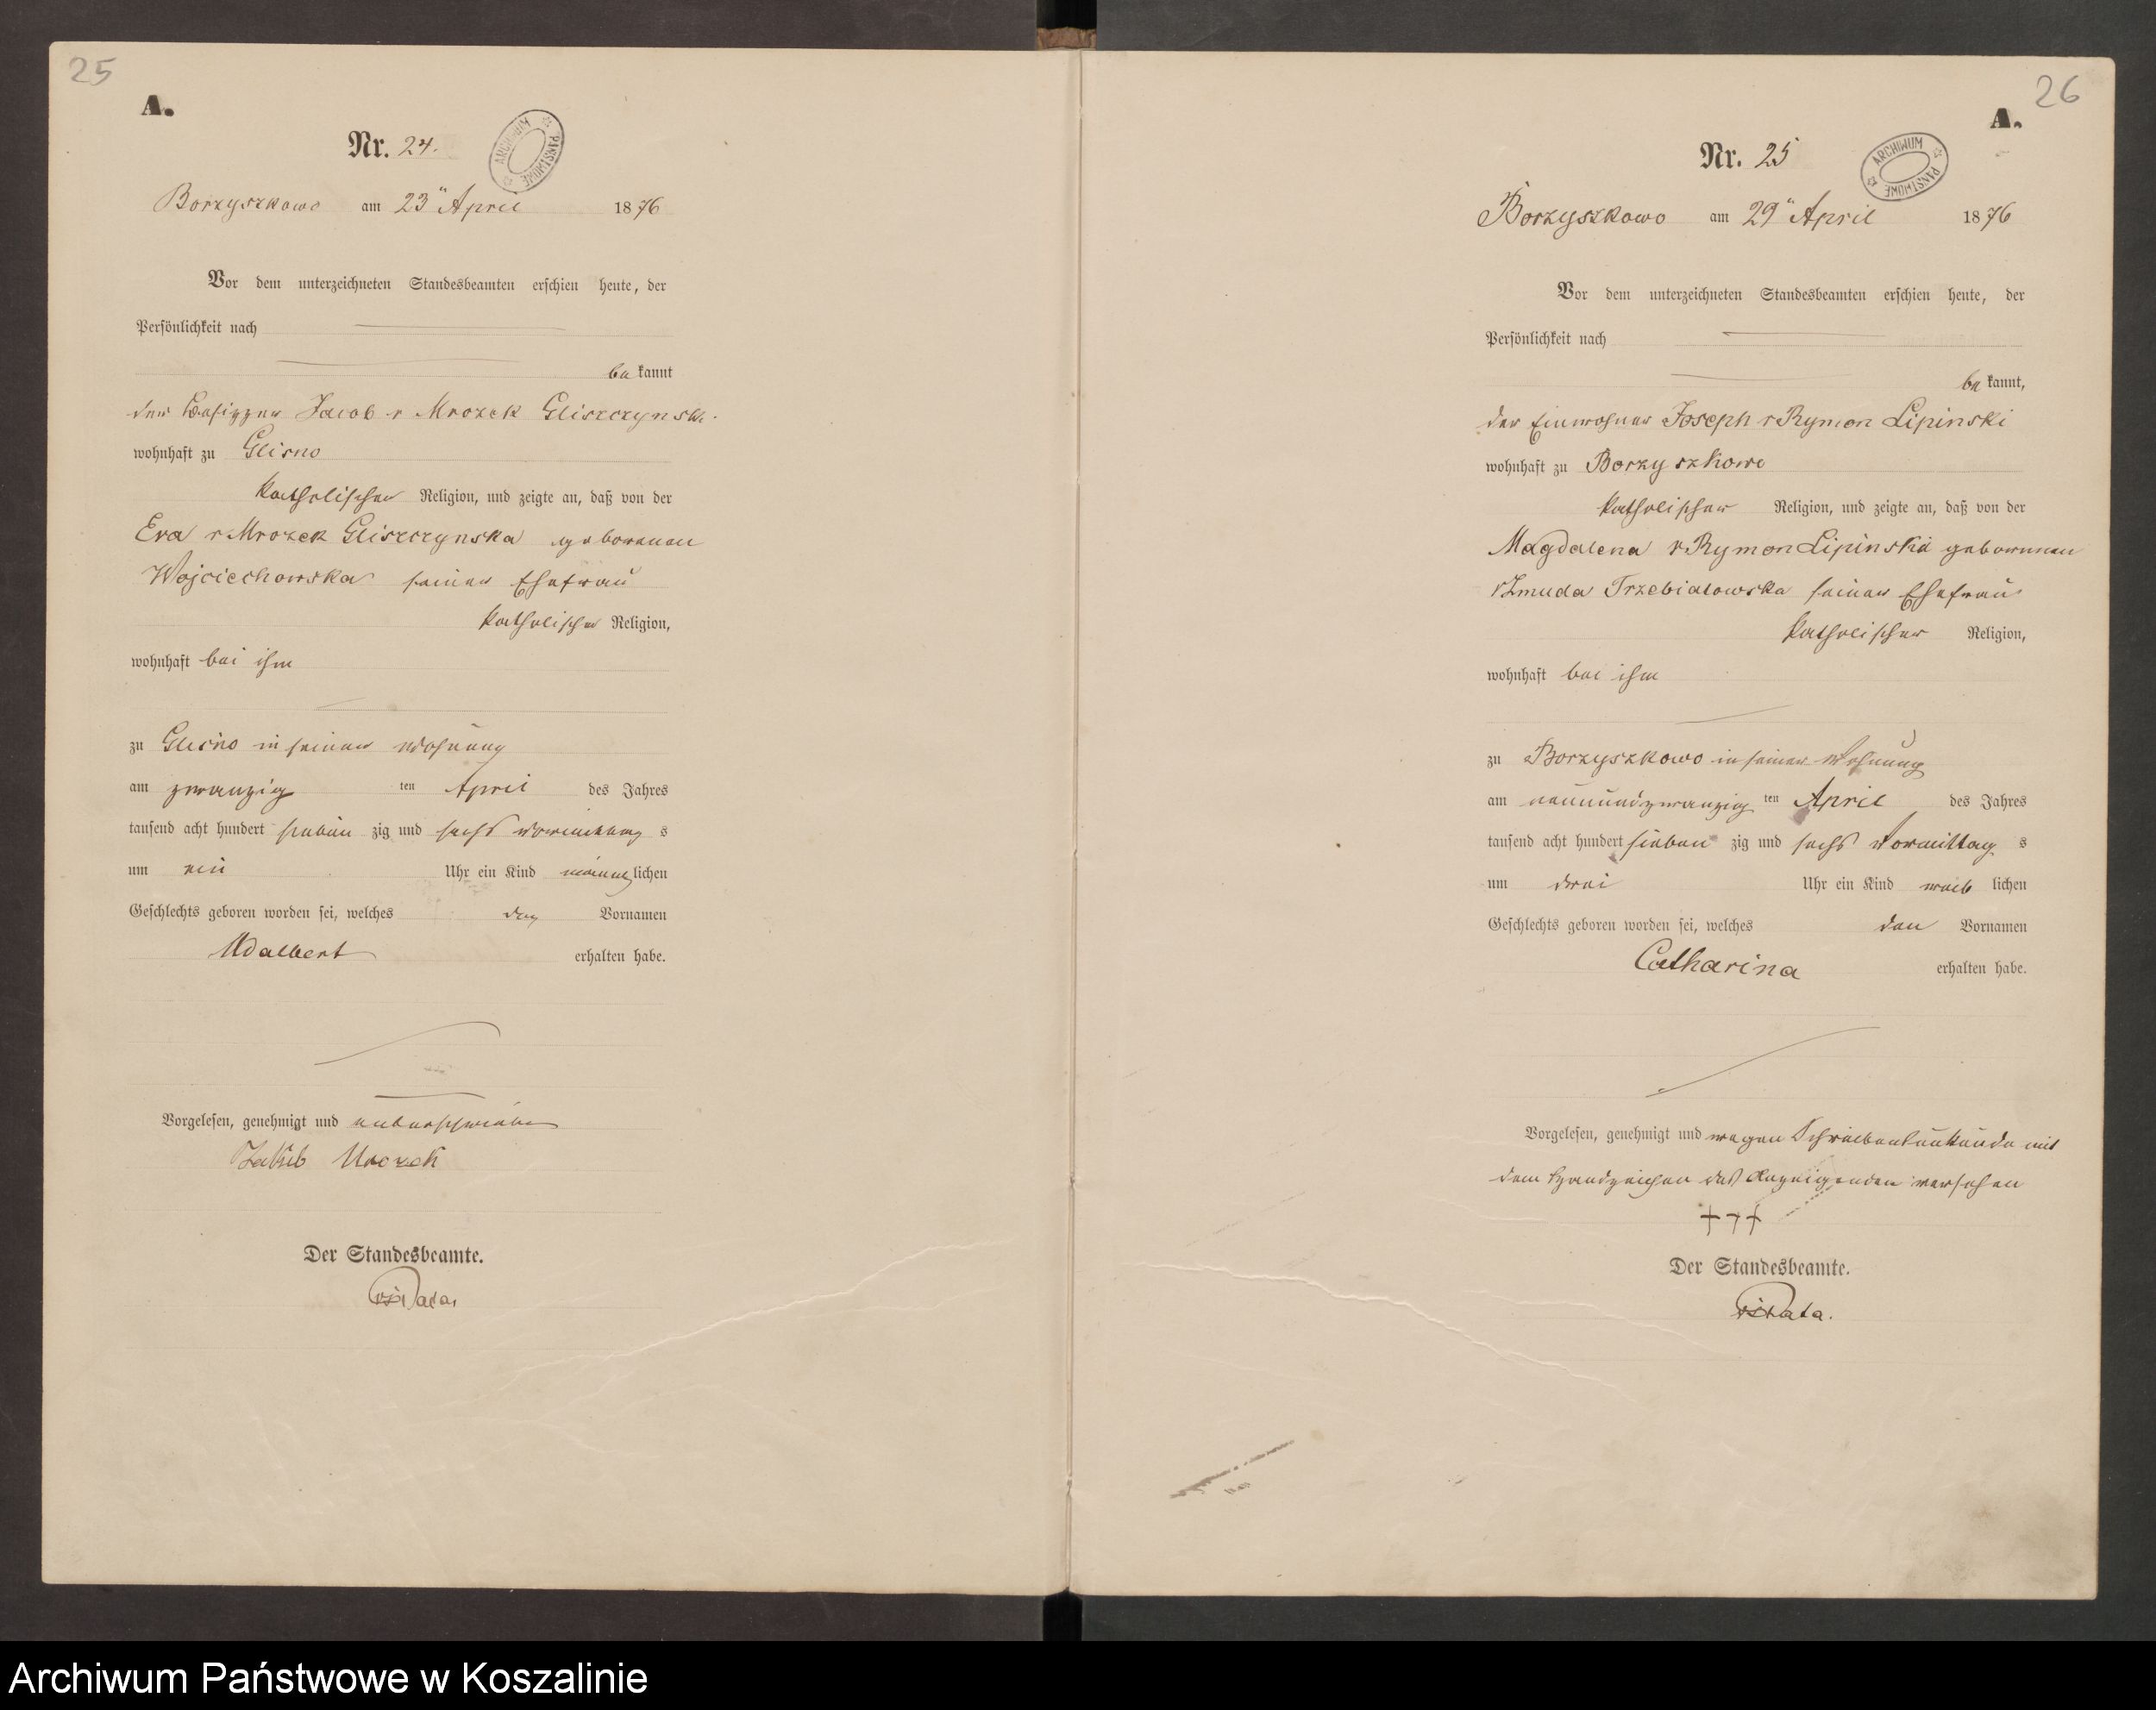 25
A.
Nr. 24.
ARCHIWUM PAŃSTWOWE
Borzyszkowo am 23" April 1876
Vor dem unterzeichneten Standesbeamten erschien heute, der
Persönlichkeit nach
bekannt
der Besitzer Jacob v Mrozek Gliszczynski
wohnhaft zu Glisno
katholischer Religion, und zeigte an, daß von der
Eva v Mrozek Gliszczynska geborenen
Wojciechowska seiner Ehefrau
katholischer Religion,
wohnhaft bei ihm
zu Glisno in seiner Wohnung
am zwanzig ten April des Jahres
tausend acht hundert sieben zig und sechs Vormittag s
um ein Uhr ein Kind männlichen
Geschlechts geboren worden sei, welches den Vornamen
Adalbert erhalten habe.
Vorgelesen, genehmigt und unterschrieben
Jakub Mrozek
Der Standesbeamte.
26
A.
Nr. 25
ARCHIWUM PAŃSTWOWE
Borzyszkowo am 29" April 1876
Vor dem unterzeichneten Standesbeamten erschien heute, der
Persönlichkeit nach
bekannt,
der Einwohner Joseph v Rymon Lipinski
wohnhaft zu Borzyszkowo
katholischer Religion, und zeigte an, daß von der
Magdalena v Rymon Lipinska geborenen
v Zmuda Trzebiatowska seiner Ehefrau
katholischer Religion,
wohnhaft bei ihm
zu Borzyszkowo in seiner Wohnung
am neunundzwanzig ten April des Jahres
tausend acht hundert sieben zig und sechs Vormittag s
um drei Uhr ein Kind weib lichen
Geschlechts geboren worden sei, welches den Vornamen
Catharina erhalten habe.
Vorgelesen, genehmigt und wegen Schreibensunkunde mit
dem Handzeichen des Anzeigenden versehen
+++
Der Standesbeamte.
Archiwum Państwowe w Koszalinie